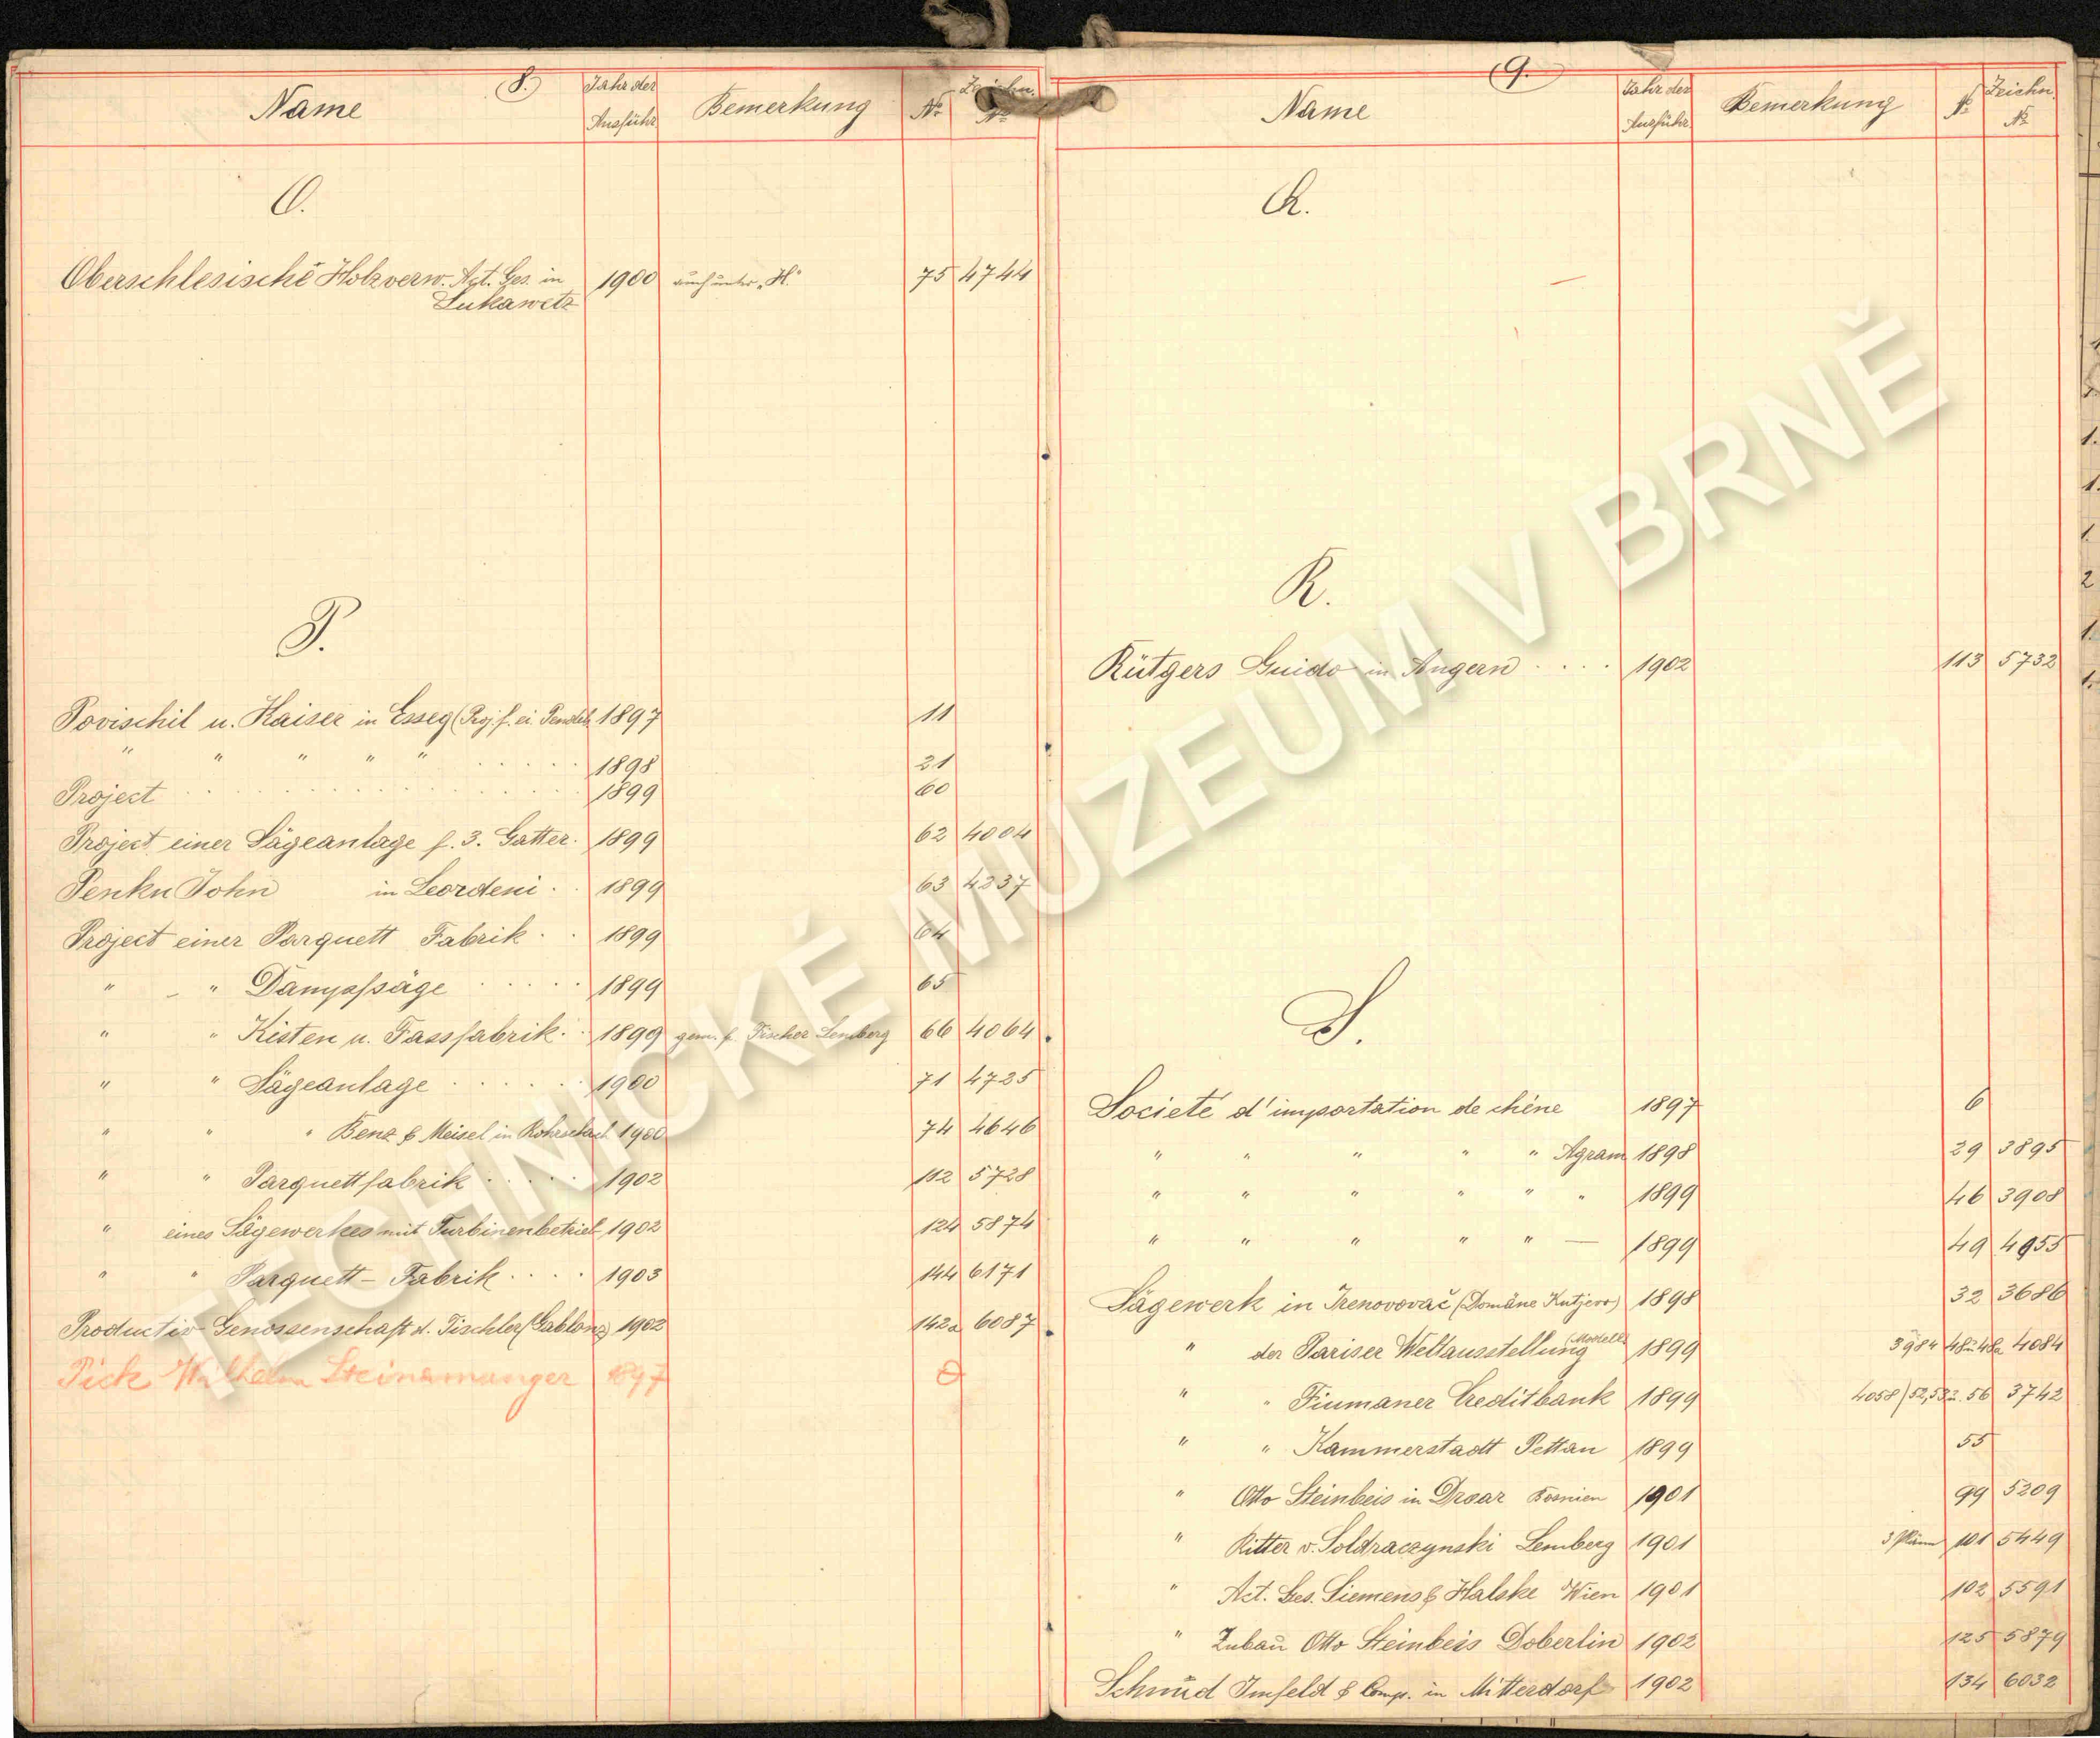 8.
Name Jahr der Ausführ. Bemerkung No Zeichn. No
O.
Oberschlesische Holzverw. Act. Ges. in 1900 auch unter „H." 75 4744
Lukawetz
P.
Povischil u. Kaiser in Esseg (Proj. f. ei. 1897 11
" " " " " . . . . . 1898 21
Project . . . . . . . . . . 1899 60
Project einer Sägeanlage f. 3. Gatter. 1899 62 4004
Penku John in Leordeni . . 1899 63 4237
Project einer Parquett Fabrik . . 1899 64
" " Dampfsäge . . . . . 1899 65
" " Kisten u. Fassfabrik . . 1899 gem. f. Fischer Lemberg 66 4064
" " Sägeanlage . . . . . . 1900 71 4725
" " " Benz & Meisel in 1900 74 4646
" " Parquettfabrik . . . . . 1902 112 5728
" eines Sägewerkes mit Turbinenbetrieb 1902 124 5874
" " Parquett-Fabrik . . . . 1903 144 6171
Productiv Genossenschaft d. Tischler (Gablonz) 1902 142a 6087
Pick Wilhelm Steinamanger 1897
9.
Name Jahr der Ausführ. Bemerkung No Zeichn. No
Q.
R.
Rütgers Guido in Angern . . . . 1902 113 5732
S.
Societé d'importation de chêne 1897 6
" " " " " Agram 1898 29 3895
" " " " " " 1899 46 3908
" " " " " — 1899 49 4955
Sägewerk in Trenovovač (Domäne Kutjevo) 1898 32 3686
" der Pariser Weltausstellung (Modell) 1899 3984 48 u 48a 4084
" " Fiumaner Creditbank 1899 4058 52, 53 u. 56 3742
" " Kammerstadt Pettau 1899 55
" Otto Steinbeis in Drvar Bosnien 1901 99 5209
" Ritter v. Soldraczynski Lemberg 1901 3 Pläne 101 5449
" Act. Ges. Siemens & Halske Wien 1901 102 5591
" Zubau Otto Steinbeis Doberlin 1902 125 5879
Schmid Imfeld & Comp. in Mitterdorf 1902 134 6032
TECHNICKÉ MUZEUM V BRNĚ